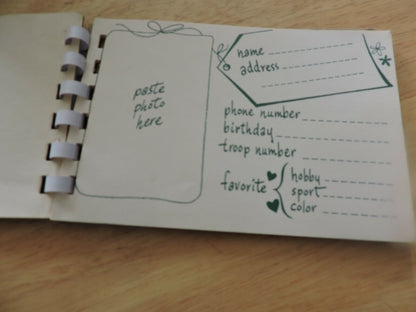 paste
photo
here
name
address
phone number
birthday
troop number
favorite
hobby
sport
color